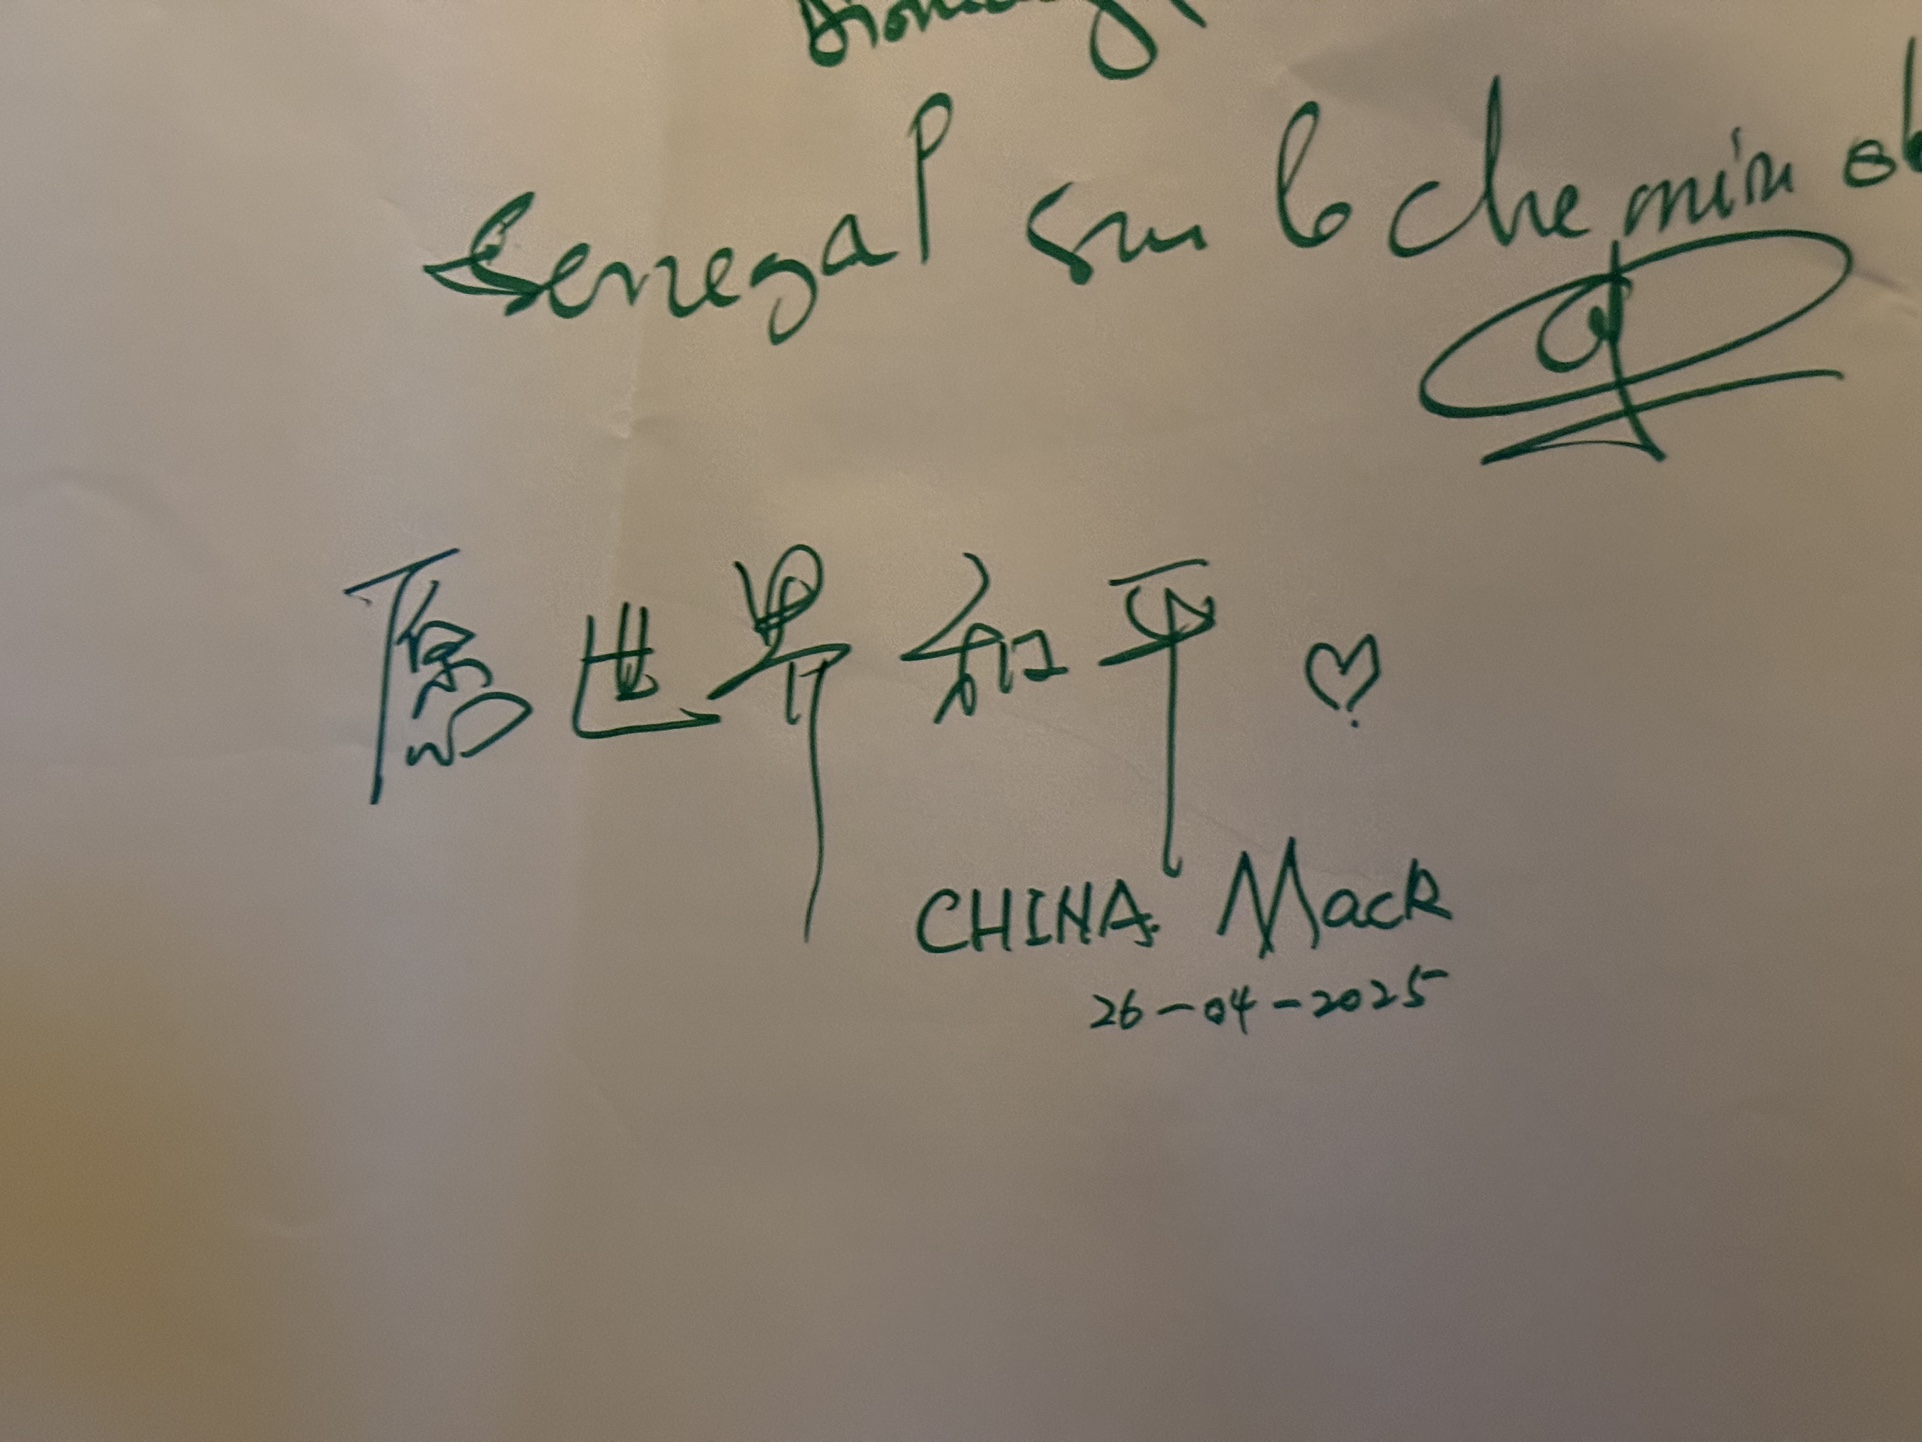 Senegal sur le chemin
愿世界和平♡
CHINA. Mack
26-04-2025